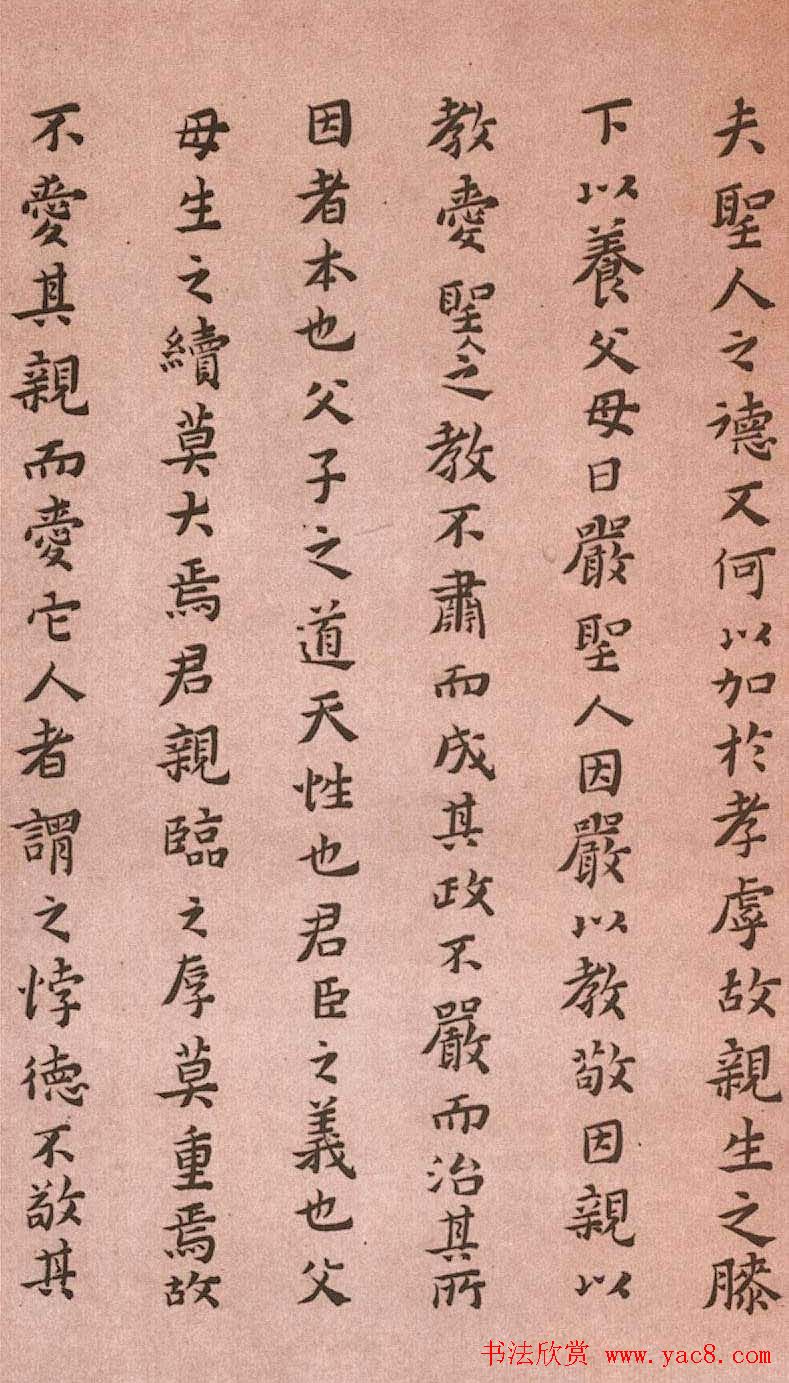 夫聖人之德又何以加於孝虖故親生之膝
下以養父母日嚴聖人因嚴以教敬因親以
教愛聖人之教不肅而成其政不嚴而治其所
因者本也父子之道天性也君臣之義也父
母生之續莫大焉君親臨之厚莫重焉故
不愛其親而愛它人者謂之悖德不敬其
书法欣赏 www.yac8.com